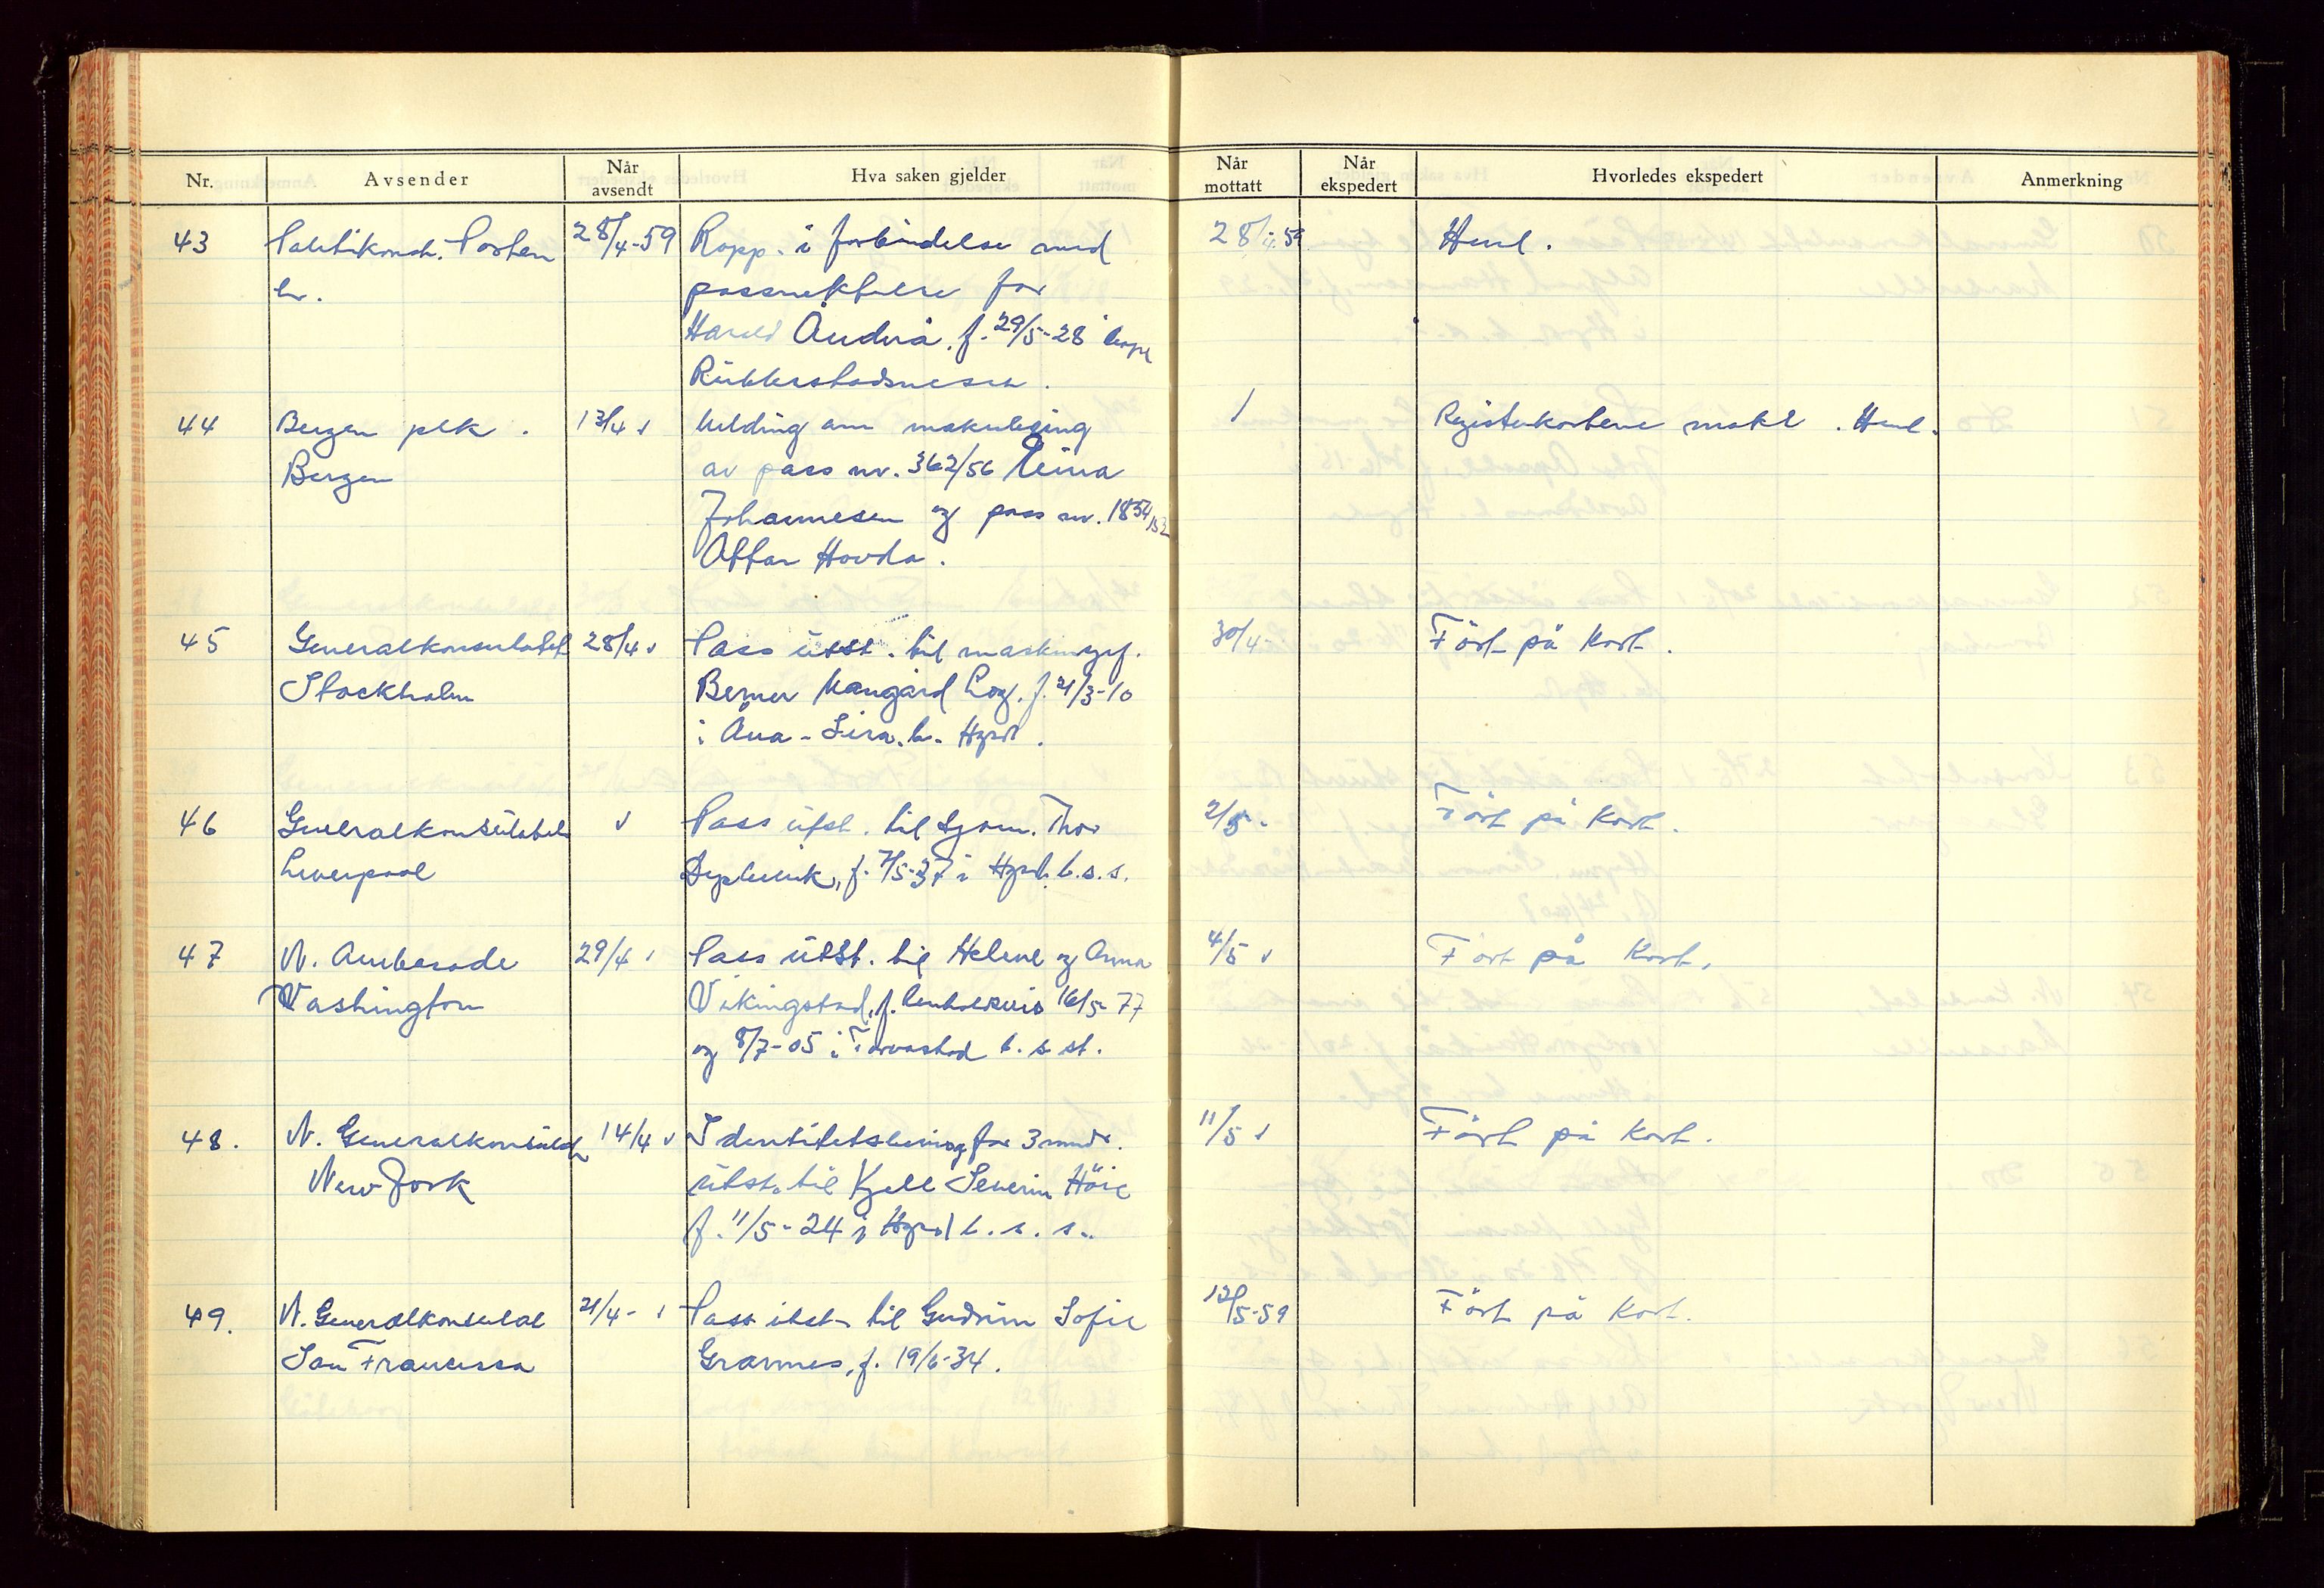 Nr.
Avsender
Når avsendt
Hva saken gjelder
Når mottatt
Når ekspedert
Hvorledes ekspedert
Anmerkning
43
28/4-59 Rapp. i forbindelse med
for
Harald f. 29/5-28
28/4-59
Henl.
44 Bergen plk. 13/4 Melding om makulering
Bergen av pass nr. 362/56
Johannesen og pass nr. 1854/52
Ottar Hovda.
Registerkortene makl. Henl.
45 Generalkonsulatet 28/4 Pass utst. til
Stockholm f. 21/3-10
i Åna-Sira. b. Hgsd.
30/4-
Ført på kort.
46 Generalkonsulatet Pass utst. til Thor
Liverpool f. 7/5-37 i Hgsd. b.s.s.
2/5-
Ført på kort.
47 N. Ambassade 29/4 Pass utst. til Helene og Anna
Washington Vikingstad, f. 16/5-77
og 8/7-05 i Torvastad b. s st.
4/5
Ført på kort.
48. N. Generalkonsulat 14/4 for 3 mndr.
New York utst. til Kjell Severin Höie
f. 11/5-24 i Hgsd b. s. s.
11/5
Ført på kort.
49. N. Generalkonsulat 21/4- Pass utst. til Gudrun Sofie
San Francisco f. 19/6-34.
12/5-59
Ført på kort.